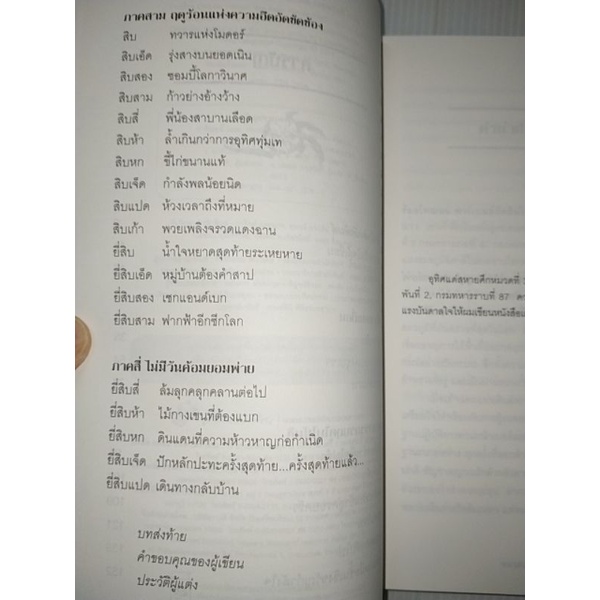 ภาคสาม ฤดูร้อนแห่งความอึดอัดขัดข้อง
สิบ ทวารแห่งโมดอร์
สิบเอ็ด รุ่งสางบนยอดเนิน
สิบสอง ซอมบี้โลกาวินาศ
สิบสาม ก้าวย่างอ้างว้าง
สิบสี่ พี่น้องสาบานเลือด
สิบห้า ล้ำเกินกว่าการอุทิศทุ่มเท
สิบหก ขี้ไก่ขนานแท้
สิบเจ็ด กำลังพลน้อยนิด
สิบแปด ห้วงเวลาถึงที่หมาย
สิบเก้า พวยเพลิงจรวดแดงฉาน
ยี่สิบ น้ำใจหยาดสุดท้ายระเหยหาย
ยี่สิบเอ็ด หมู่บ้านต้องคำสาป
ยี่สิบสอง เชกแอนด์เบก
ยี่สิบสาม ฟากฟ้าอีกซีกโลก
ภาคสี่ ไม่มีวันค้อมยอมพ่าย
ยี่สิบสี่ ล้มลุกคลุกคลานต่อไป
ยี่สิบห้า ไม้กางเขนที่ต้องแบก
ยี่สิบหก ดินแดนที่ความห้าวหาญก่อกำเนิด
ยี่สิบเจ็ด ปักหลักปะทะครั้งสุดท้าย...ครั้งสุดท้ายแล้ว...
ยี่สิบแปด เดินทางกลับบ้าน
บทส่งท้าย
คำขอบคุณของผู้เขียน
ประวัติผู้แต่ง
อุทิศแด่สหายศึกหมวดที่
พันที่ 2, กรมทหารราบที่ 87
แรงบันดาลใจให้ผมเขียนหนังสือ